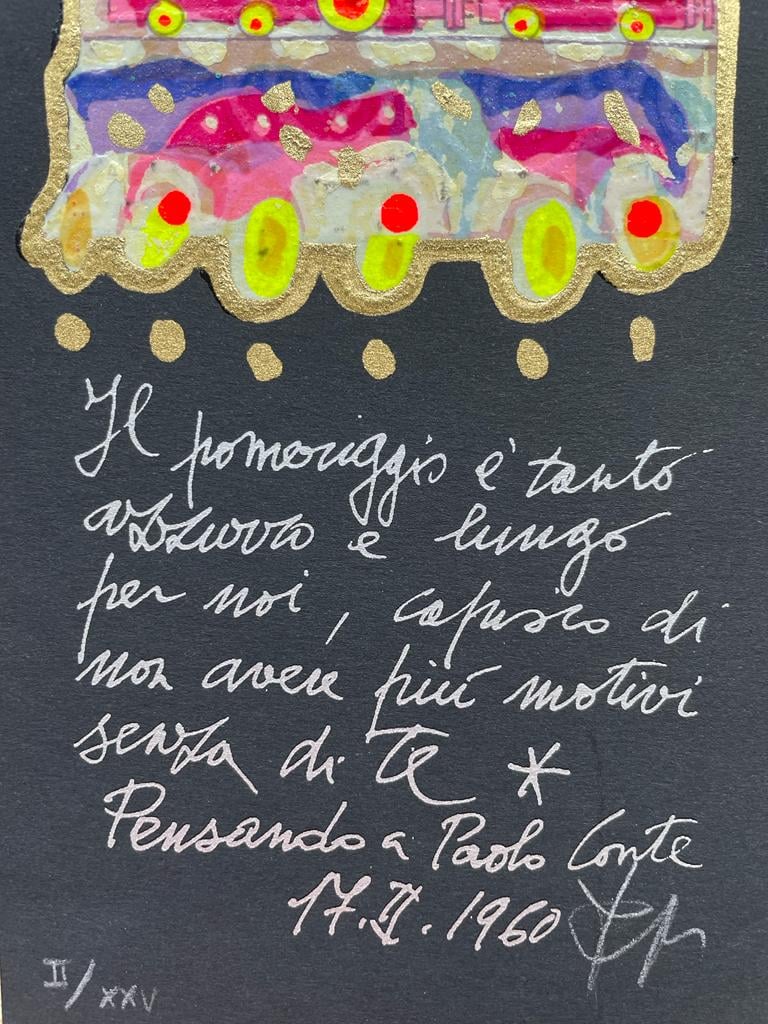 Il pomeriggio è tanto
azzurro e lungo
per noi, capisco di
non avere più motivi
senza di te *
Pensando a Paolo Conte
17.II.1960
II/XXV